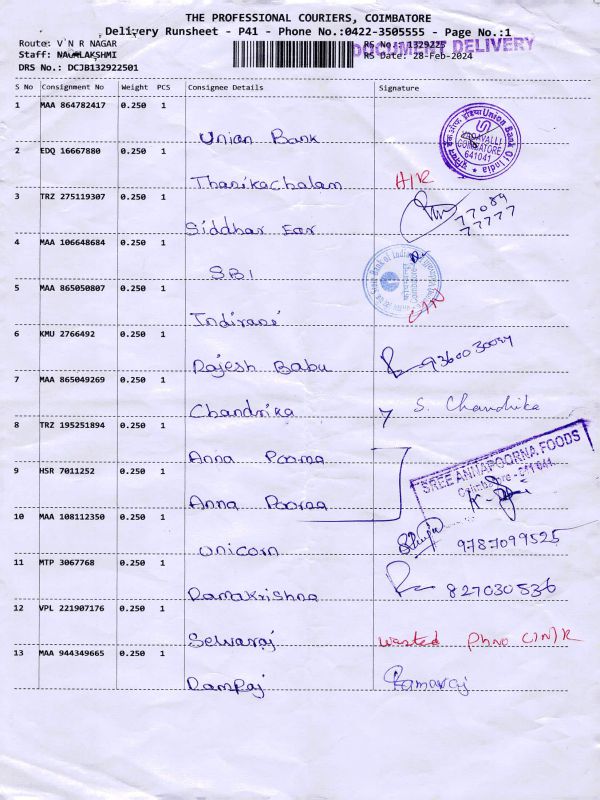 THE PROFESSIONAL COURIERS, COIMBATORE
Delivery Runsheet - P41 - Phone No.:0422-3505555 - Page No.:1
Route: V N R NAGAR
RS No.: 1329225
DOCUMENT DELIVERY
Staff: NAGALAKSHMI
RS Date: 28-Feb-2024
DRS No.: DCJB132922501
S No Consignment No Weight PCS Consignee Details Signature
1 MAA 864782417 0.250 1
Union Bank
Union Bank Of India
COIMBATORE
641041
2 EDQ 16667880 0.250 1
Thasikachalam H/R
3 TRZ 275119307 0.250 1
Siddhar Eer 77089
77777
4 MAA 106648684 0.250 1
SBI
5 MAA 865050807 0.250 1
Indirani
6 KMU 2766492 0.250 1
Rajesh Babu
7 MAA 865049269 0.250 1
Chandrika S. Chandrika
8 TRZ 195251894 0.250 1
Anna Poorna
SREE ANNAPOORNA FOODS
Coimbatore - 641 041.
9 HSR 7011252 0.250 1
Anna Pooraa
10 MAA 108112350 0.250 1
Unicorn 9787099525
11 MTP 3067768 0.250 1
Ramakrishna 827030536
12 VPL 221907176 0.250 1
Selvaraj Wasted Phno C/N/R
13 MAA 944349665 0.250 1
Ramraj Ramaraj